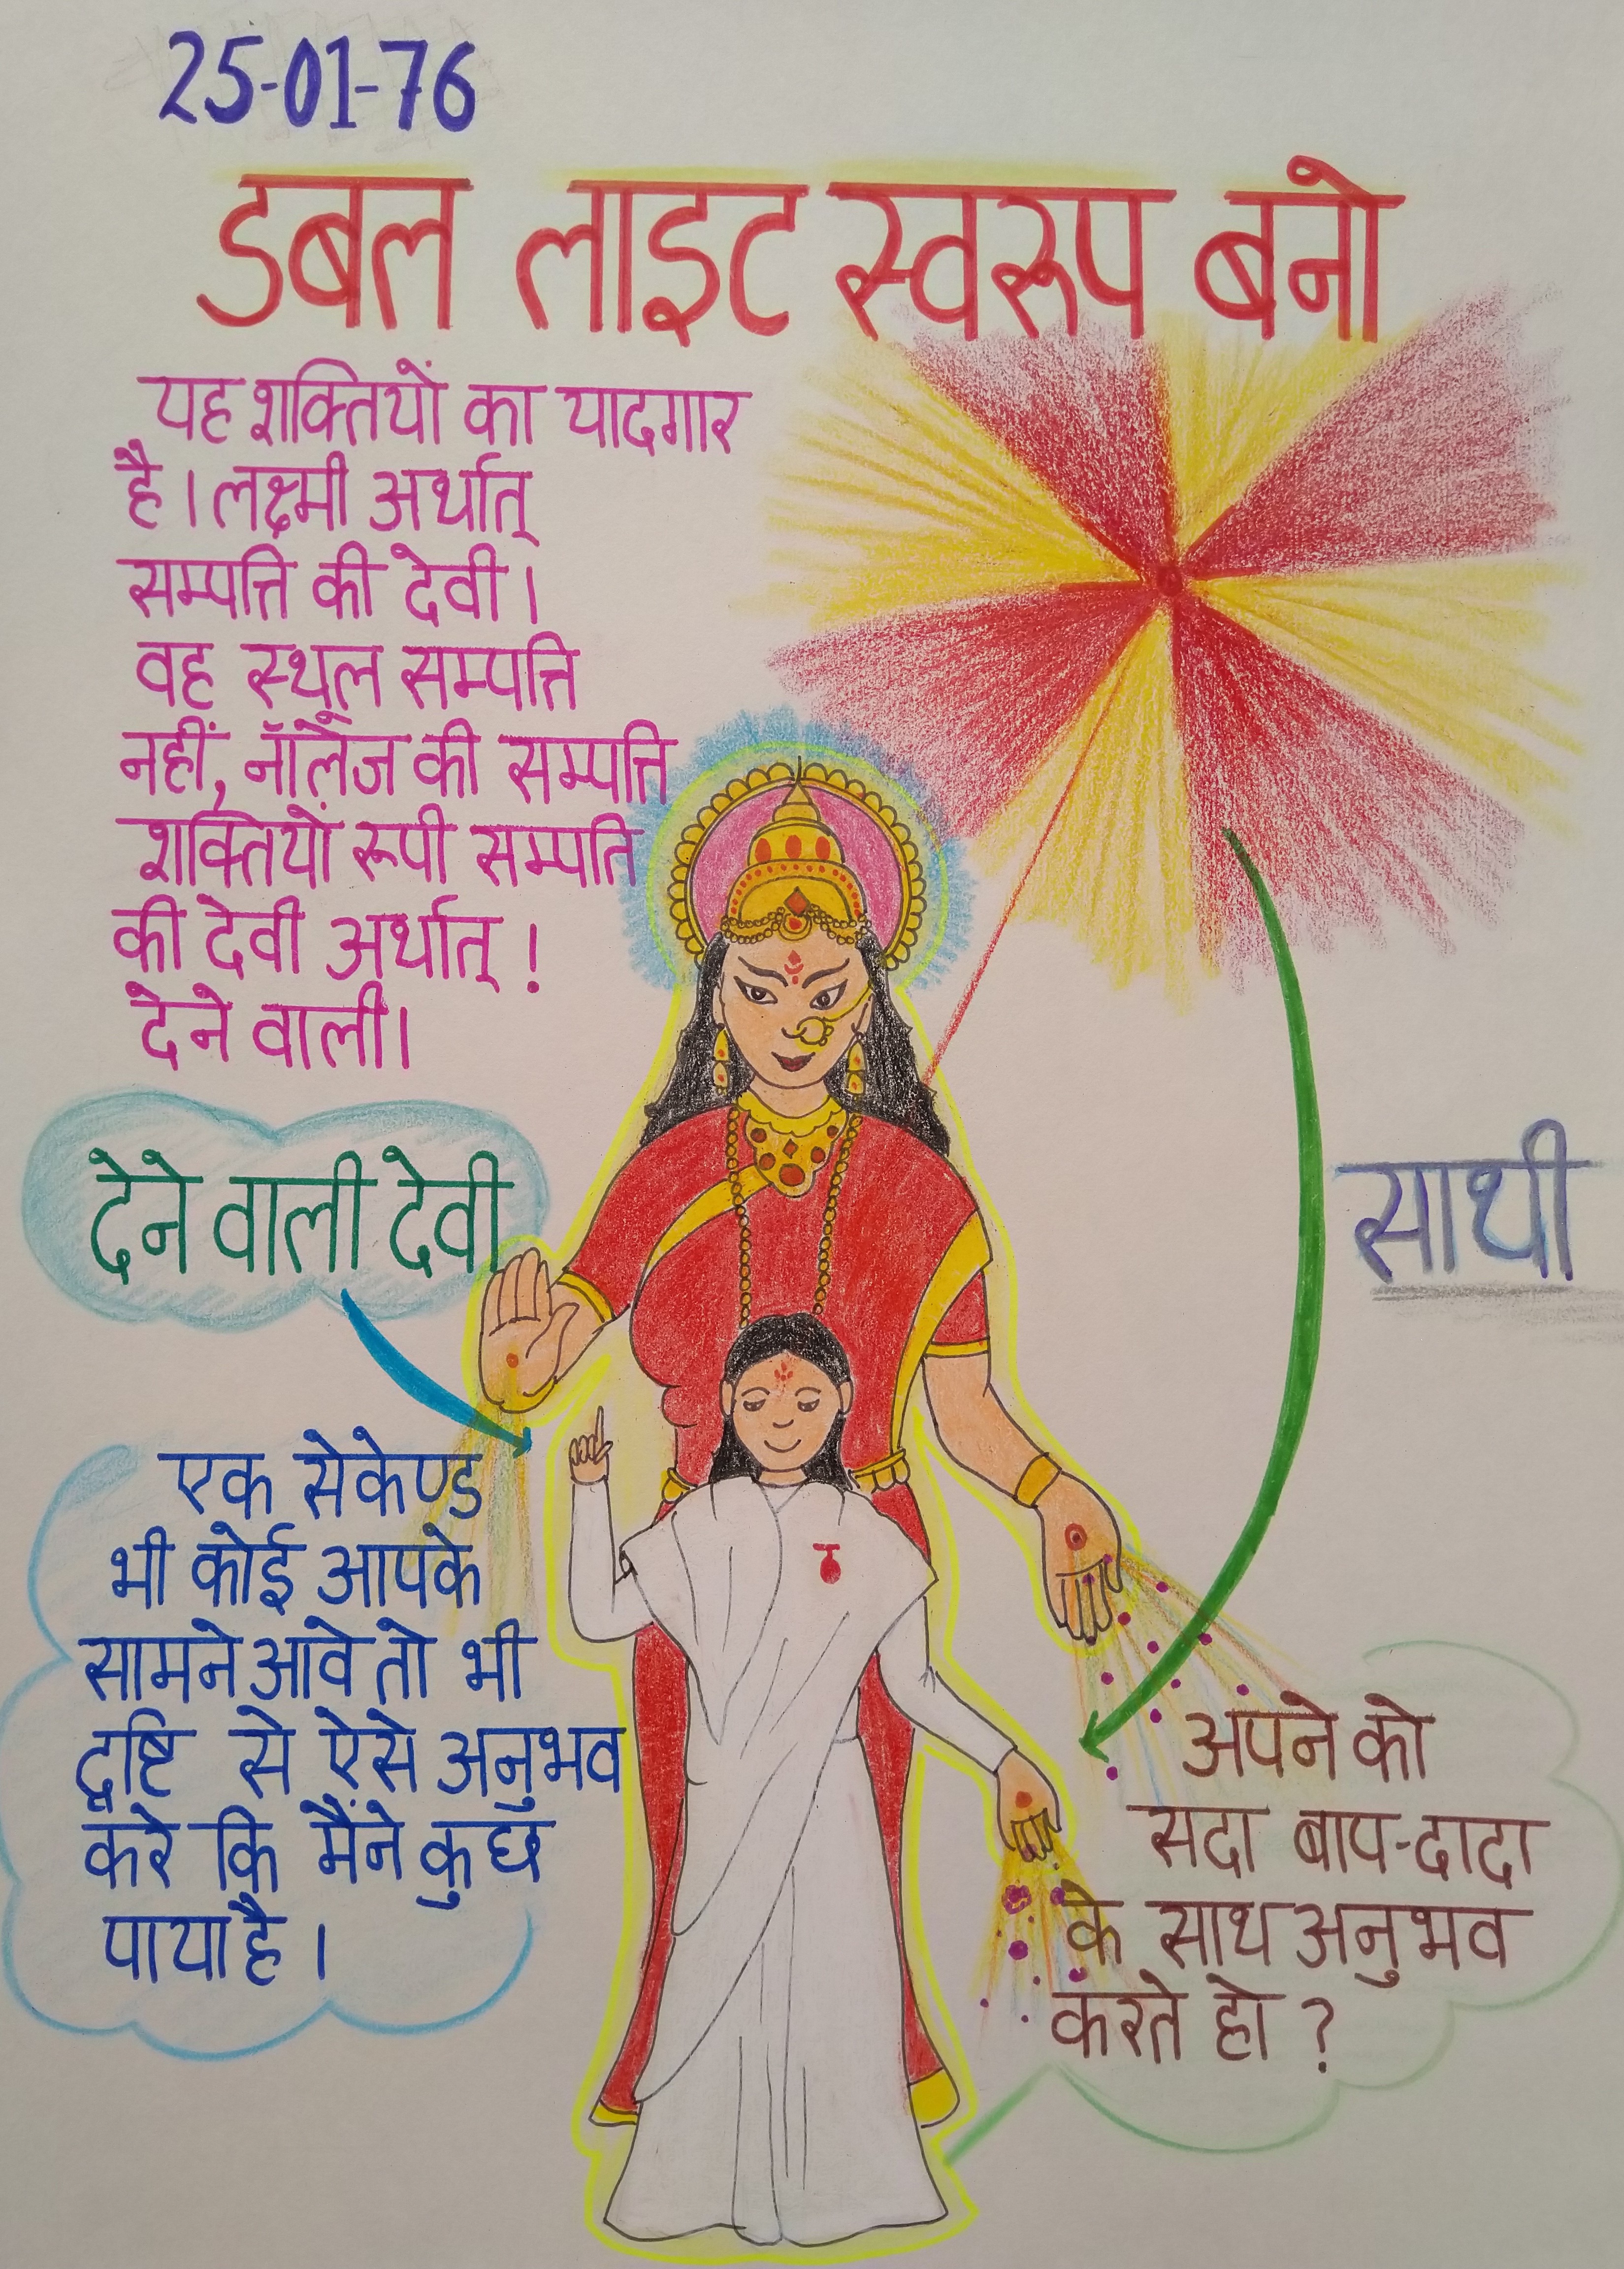 25-01-76
डबल लाइट स्वरूप बनो
यह शक्तियों का यादगार
है। लक्ष्मी अर्थात्
सम्पत्ति की देवी।
वह स्थूल सम्पत्ति
नहीं, नॉलेज की सम्पत्ति
शक्तियों रूपी सम्पति
की देवी अर्थात् !
देने वाली।
देने वाली देवी
साथी
एक सेकेण्ड
भी कोई आपके
सामने आवे तो भी
दृष्टि से ऐसे अनुभव
करे कि मैंने कुछ
पाया है।
अपने को
सदा बाप-दादा
के साथ अनुभव
करते हो ?